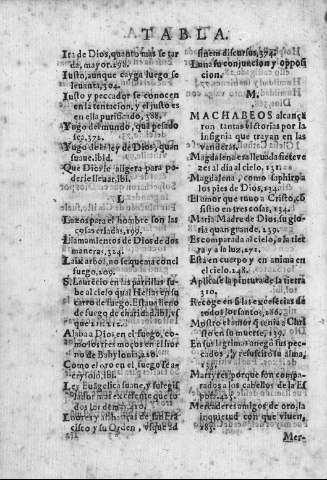 TABLA.
Ira de Dios, quanto mas se tar
da, mayor. 298.
Iusto, aunque cayga luego se
leuanta, 304.
Iusto y peccador se conocen
en la tentacion, y el justo es
en ella purificado, 388.
Yugo del mundo, quã pesado
sea. 372.
Yugo de la ley de Dios, quan
suaue. ibid.
Que Dios le aligera para po-
derle lleuar. ibi.
L
Lazos para el hombre son las
cosas criadas, 199.
Llamamientos de Dios de dos
maneras, 324.
no se quema con el
fuego, 209.
S. Laurecio en las parrillas su-
be al cielo qual Helias en su
carro de fuego. Estaua lleno
de fuego de charidad. ibi,
que 211. 212.
Alaba a Dios en el fuego, co-
mo los tres moços en el hor
no de Babylonia, 210.
Como el oro en el fuego
ibi.
Ley Euãgelica suaue, y
mas excelente que to
dos los demas. 210.
Loores y de san Frã
cisco y su Orden,
sus en discursos, 394.
Luna su conjuncion y opposi
cion.
M.
MACHABEOS alcançä
ron tantas victorias por la
insignia que trayan en las
vanderas.
Magdalena era lleuada siete ve
zes al dia al cielo, 231.
Magdalena, como saphir a
los pies de Dios, 234.
El amor que tuuo a Christo, cõ
sistio en tres cosas, 234.
Maria Madre de Dios, su glo
ria quan grande, 239.
Es comparada al cielo, a la tier
ra y a la luz, 272.
Esta en cuerpo y en anima en
el cielo. 248.
Aplicase la pintura de la tierra
310.
Recoge en si las
todos los santos, 286.
Mostro el amor q̃ tenia a Chri
sto en su muerte, 239.
En sus lagrimas anego sus pec-
cados, y resuscito su alma,
235.
Martyres porque son compa-
rados a los cabellos de la Es
posa. 425.
Mercaderes amigos de oro, la
inquietud con que viuen,
285.
Mer-